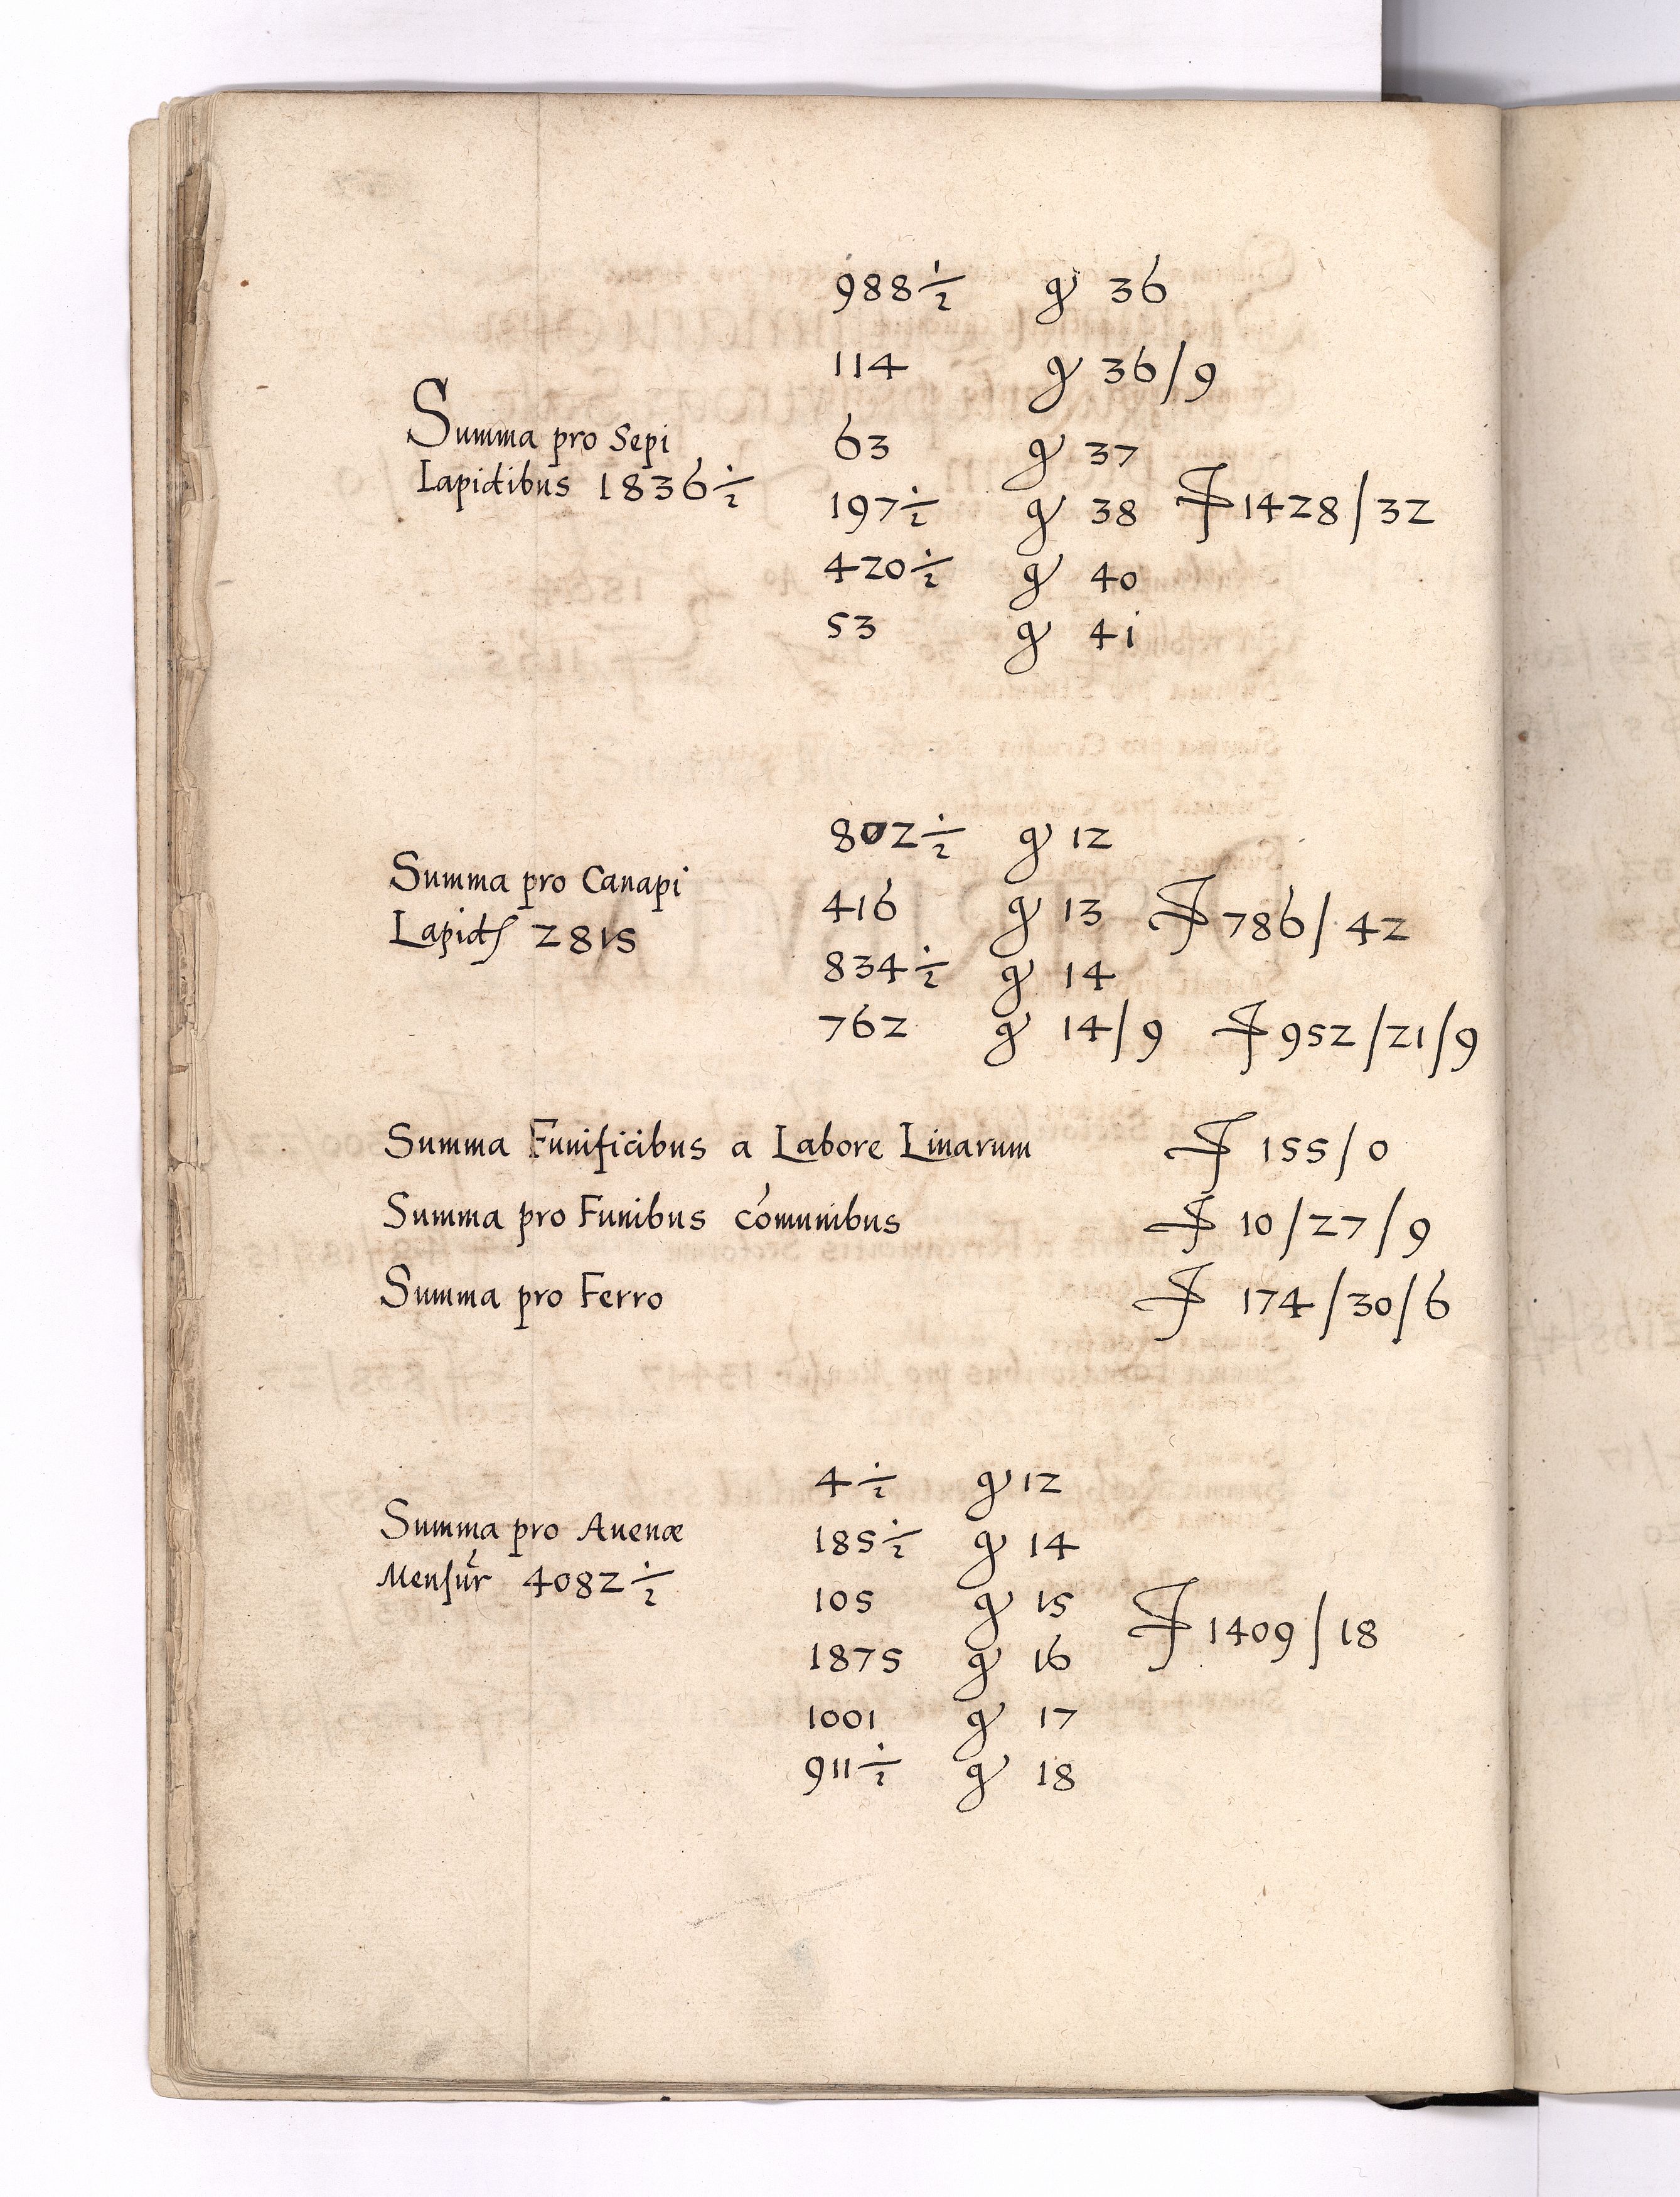 988 1/2 gr 36
114 gr 36/9
Summa pro Sepi 63 gr 37
Lapidibus 1836 1/2 197 1/2 gr 38 F 1428/32
420 1/2 gr 40
53 gr 41
802 1/2 gr 12
Summa pro Canapi 416 gr 13 F 786/42
Lapid 2815 834 1/2 gr 14
762 gr 14/9 F 952/21/9
Summa Funificibus a Labore Linarum F 155/0
Summa pro Funibus cómunibus F 10/27/9
Summa pro Ferro F 174/30/6
4 1/2 gr 12
Summa pro Auenæ 185 1/2 gr 14
Mensur 4082 1/2 105 gr 15 F 1409/18
1875 gr 16
1001 gr 17
911 1/2 gr 18